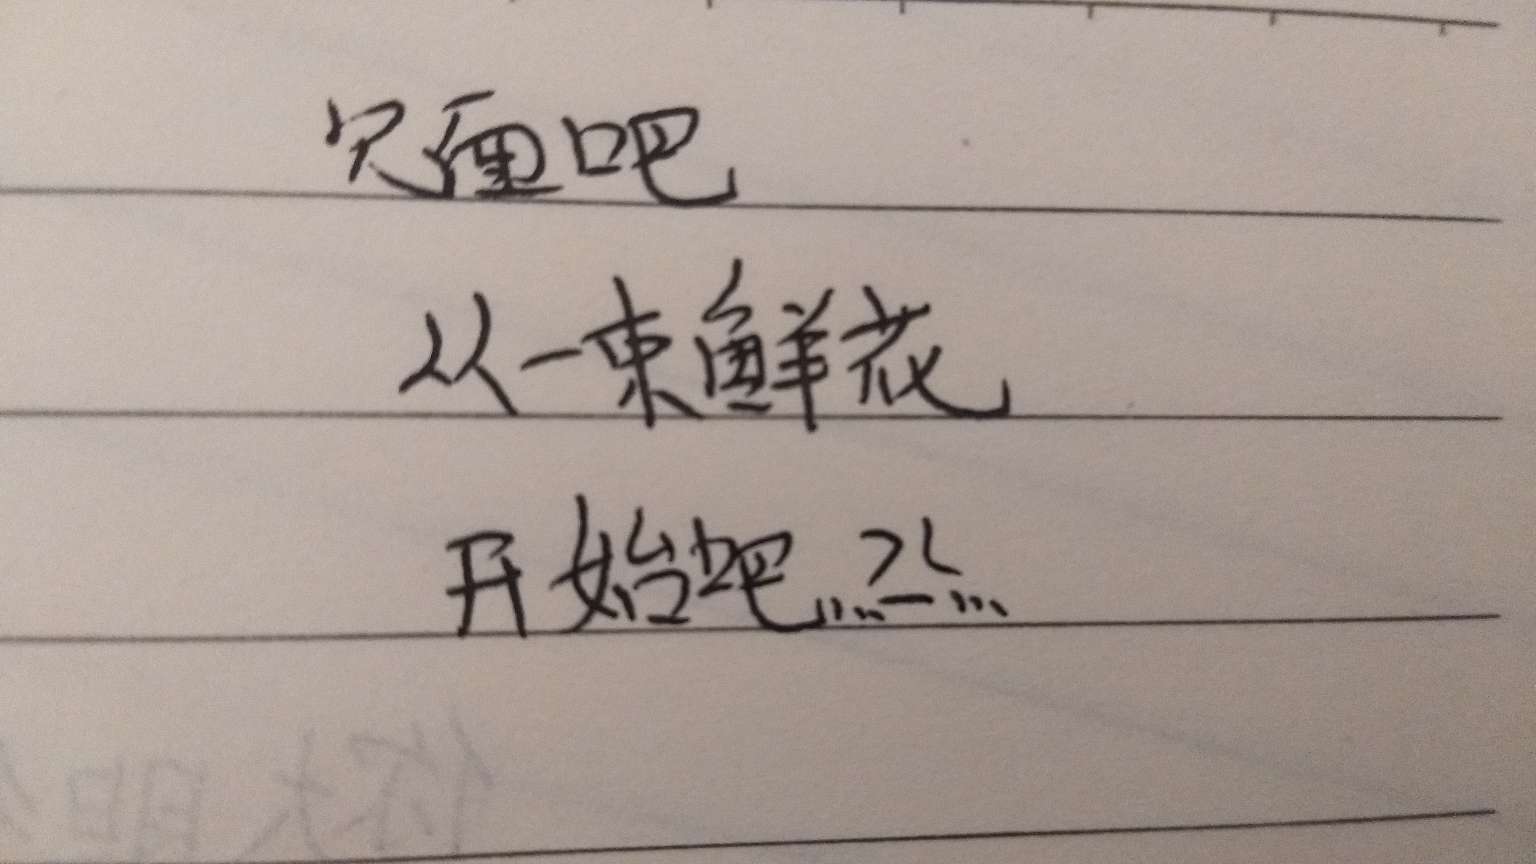 见面吧
从一束鲜花
开始吧